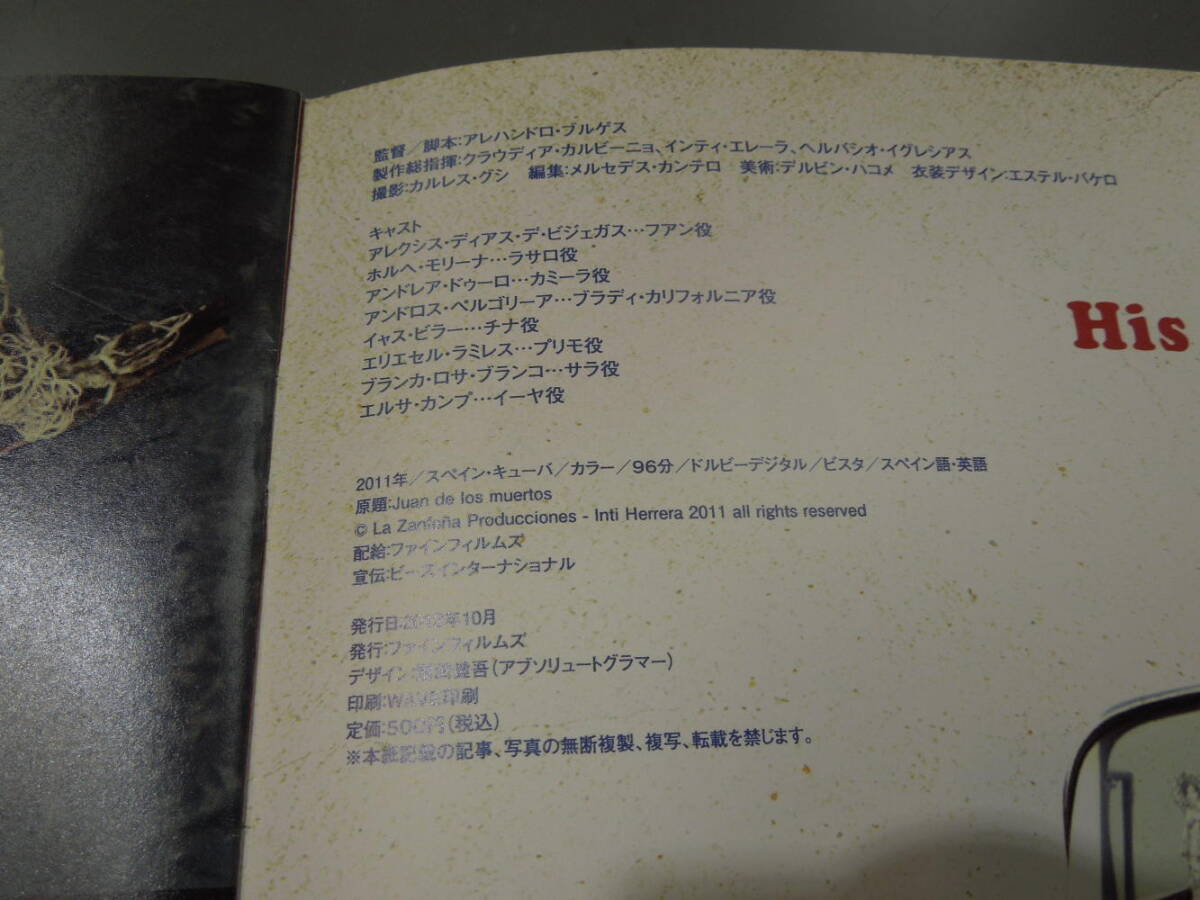 監督／脚本:アレハンドロ・ブルゲス
製作総指揮:クラウディア・カルビーニョ、インティ・エレーラ、ヘルバシオ・イグレシアス
撮影:カルレス・グシ 編集:メルセデス・カンテロ 美術:デルビン・ハコメ 衣装デザイン:エステル・バケロ
キャスト
アレクシス・ディアス・デ・ビジェガス…フアン役
ホルヘ・モリーナ…ラサロ役
アンドレア・ドゥーロ…カミーラ役
アンドロス・ペルゴリーア…ブラディ・カリフォルニア役
イャス・ビラー…チナ役
エリエセル・ラミレス…プリモ役
ブランカ・ロサ・ブランコ…サラ役
エルサ・カンプ…イーヤ役
His
2011年／スペイン・キューバ／カラー／96分／ドルビーデジタル／ビスタ／スペイン語・英語
原題:Juan de los muertos
© La Zanfoña Producciones - Inti Herrera 2011 all rights reserved
配給:ファインフィルムズ
宣伝:ビーズインターナショナル
発行日:2012年10月
発行:ファインフィルムズ
デザイン:(アブソリュートグラマー)
印刷:WAVE印刷
定価:500円(税込)
※本紙記載の記事、写真の無断複製、複写、転載を禁じます。